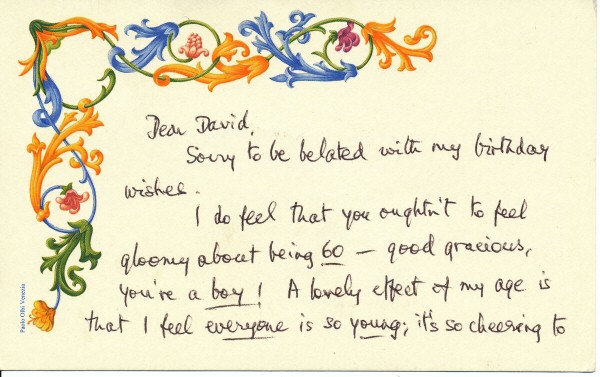 Dear David,
Sorry to be belated with my birthday
wishes.
I do feel that you oughtn't to feel
gloomy about being 60 — good gracious,
you're a boy! A lovely effect of my age is
that I feel everyone is so young; it's so cheering to
Paolo Olbi Venezia